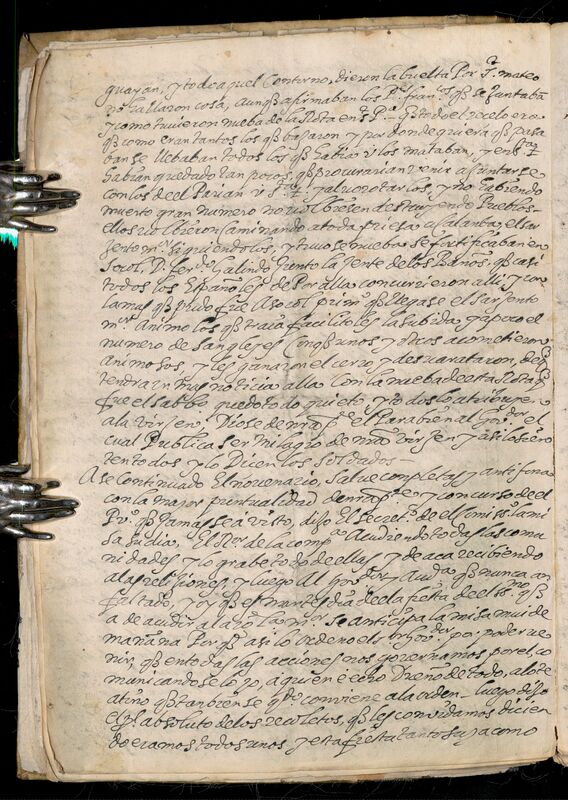 guayan, y todo aquel Contorno, dieron la buelta Por S. mateo
no hallaron cosa, aunq̃ afirmaban los Pes fran.cos q̃ se Juntabã
y como tuvieron nueba de la Rota en S P. q̃ todo el recelo era
q̃ como eran tantos los q̃ bajaron y por donde quiera q̃ pasa
ban se llebaban todos los q̃ habia u los mataban, y en s.ta
habian quedado tan pocos, q̃ procurarian venir a Juntarse
con los del Parian y y alborotarlos, y no habiendo
muerto gran numero no volbiesen destruyendo Pueblos
ellos volbieron Caminando a toda priesa a Calamba, el sar
jento m.r siguiendolos, y tuvo se nueba se fortificaban en
D. fer.do Galindo Junto la Jente de los Baños, q̃ casi
todos los Españoles de Por alla concurrieron alli y con
la mas q̃ pudo fue a prim.o q̃ llegase el sarjento
m.r animo los q̃ traia facilitoles la subida, y apoco el
numero de sangleyes Conq̃ unos y otros acometieron
animosos, y les ganaron el cerro, y desvarataron, de q̃
tendra in noticia alla con la nueba de esta Rota q̃
fue el sabbo quedo todo quieto y todos lo atribuyen
a la virjen. Diose de nra p.te el Parabien al Gov.dor el
cual Publica ser milagro de nra virjen y asi lo
ten todos y lo Dicen los soldados
A se continuado El novenario, Salve completas y antifona
con la major puntualidad de nra p.te y concurso de el
Pu.o q̃ Jamas se a visto, dijo El Secret.o de el la mi
sa su dia, El R.or de la comp.a Acudiendo todas las comu
nidades y lo grabe todo de ellas, y de aca recibiendo
a las religiones, y luego al gov.dor y Aud.a q̃ nunca an
faltado, y oy q̃ es martes dia de la fiesta de el q̃
a de acudir a la noSe anticipa la misa mui de
mañana Por q̃ asi lo ordeno el s.r gov.dor por poder ve
nir, q̃ en todas las acciones nos governamos por el, co
municandoselo yo, a quien e echo Dueno de todo,
atino q̃ tambien se q.to conviene a la orden Luego dijo
el absoluto de los recoletos, q̃ les convidamos dicien
do eramos todos unos y esta fiesta tanto suya como